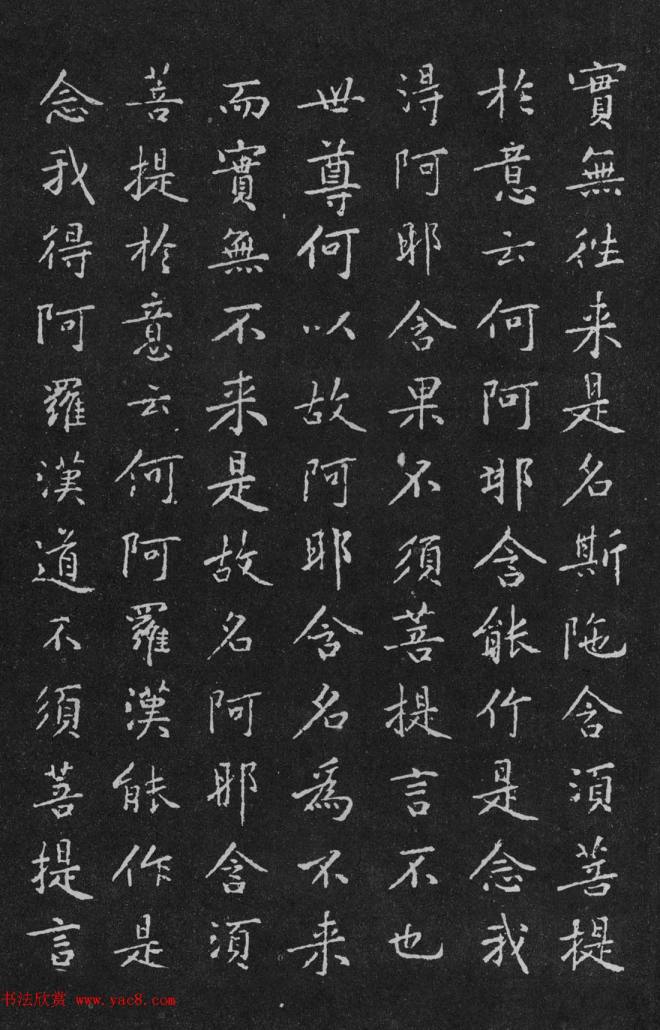 實無往来是名斯陁含須菩提
於意云何阿那含能作是念我
得阿那含果不須菩提言不也
世尊何以故阿那含名為不来
而實無不来是故名阿那含須
菩提於意云何阿羅漢能作是
念我得阿羅漢道不須菩提言
书法欣赏 www.yac8.com